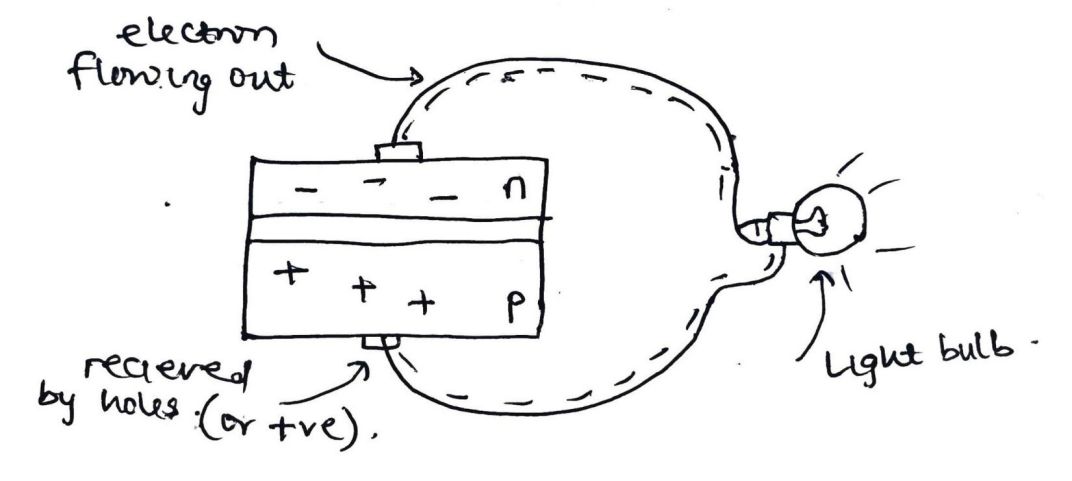 electron
flowing out
− − − n
+ + + p
recieved
by holes. (or +ve).
Light bulb.